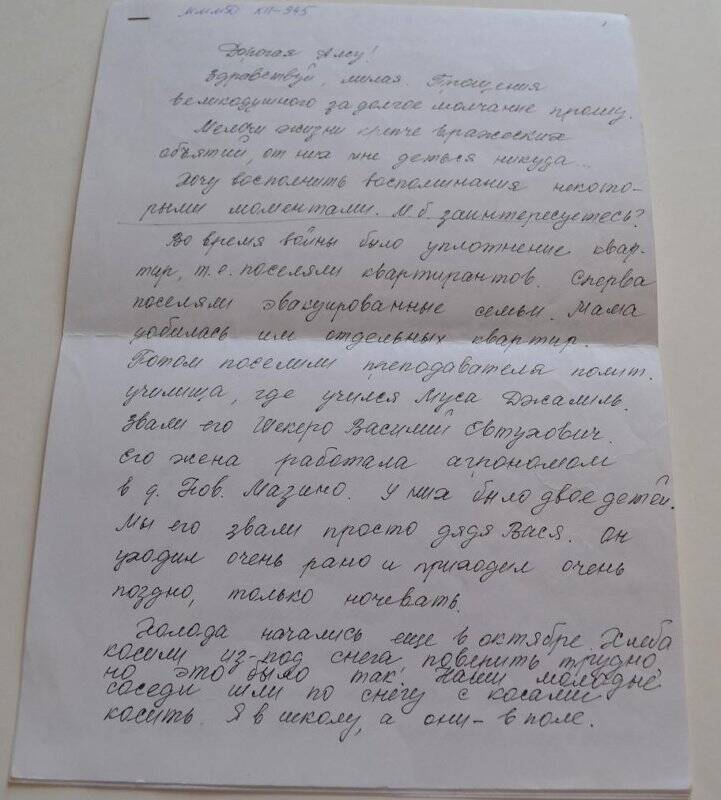 МММД КП-945
1
Дорогая Алсу!
Здравствуй, милая. Прощения
великодушного за долгое молчание прошу.
Мелочи жизни крепче вражеских
объятий, от них мне деться никуда...
Хочу восполнить воспоминания некото-
рыми моментами. М.б. заинтересуетесь?
Во время войны было уплотнение квар-
тир, т.е. поселяли квартирантов. Сперва
поселяли эвакуированные семьи. Мама
добилась им отдельных квартир.
Потом поселили преподавателя полит.
училища, где учился Муса Джалиль.
Звали его Шекеро Василий Евтухович.
Его жена работала агрономом
в д. Нов. Мазино. У них было двое детей.
Мы его звали просто дядя Вася. Он
уходил очень рано и приходил очень
поздно, только ночевать.
Холода начались еще в октябре. Хлеба
косили из-под снега, поверить трудно,
но это было так. Наши молодые
соседи шли по снегу с косами
косить. Я в школу, а они - в поле.